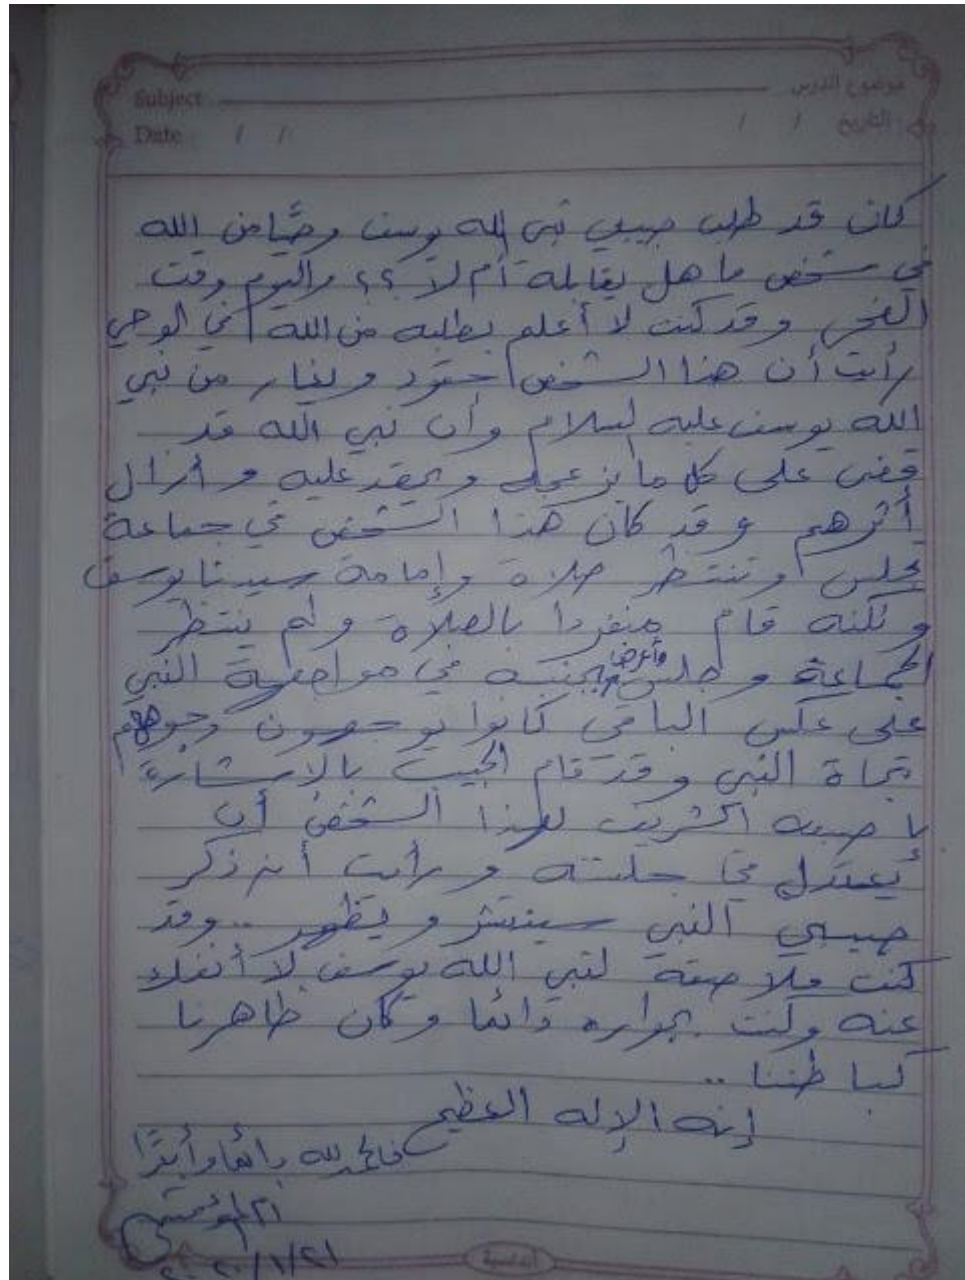 Subject موضوع الدرس
Date / / التاريخ / /
كان قد طلب حبيبي نبي الله يوسف وحيًا من الله
في شخص ما هل يقابله أم لا ؟؟ واليوم وقت
الفجر وقد كنت لا أعلم بطلبه من الله في الوحي
رأيت أن هذا الشخص حقود ويغار من نبي
الله يوسف عليه السلام وأن نبي الله قد
قضى على كل ما يزعجه ويحقد عليه وأزال
أثرهم وقد كان هذا الشخص في جماعة
تجلس وتنتظر صلاة وإمامة سيدنا يوسف
ولكنه قام منفردا بالصلاة ولم ينتظر
الجماعة وجلس وأعرض بجنبه في مواجهة النبي
على عكس الباقي كانوا يوجهون وجوههم
تجاة النبي وقد قام الحبيب بالإشارة
بإصبعه الشريف لهذا الشخص أن
يعتدل في جلسته ورأيت أن ذكر
حبيبي النبي سينتشر ويظهر .. وقد
كنت ملاصقة لنبي الله يوسف لا أنفك
عنه وكنت بجواره دائما وكان ظاهرنا
كباطننا ..
إنه الإله العظيم
فالحمد لله دائما وأبدًا
٢٠٢٠/١/٢١